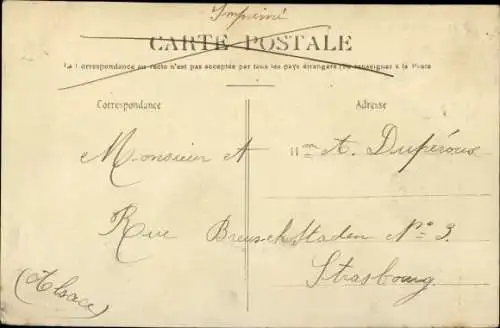 Imprimé
CARTE POSTALE
La Correspondance au recto n'est pas acceptée par tous les pays étrangers (Se renseigner à la Poste
Correspondance
Adresse
Monsieur A
A. Dupéroux
Rue Breuschstaden No 3.
Strasbourg
(Alsace)